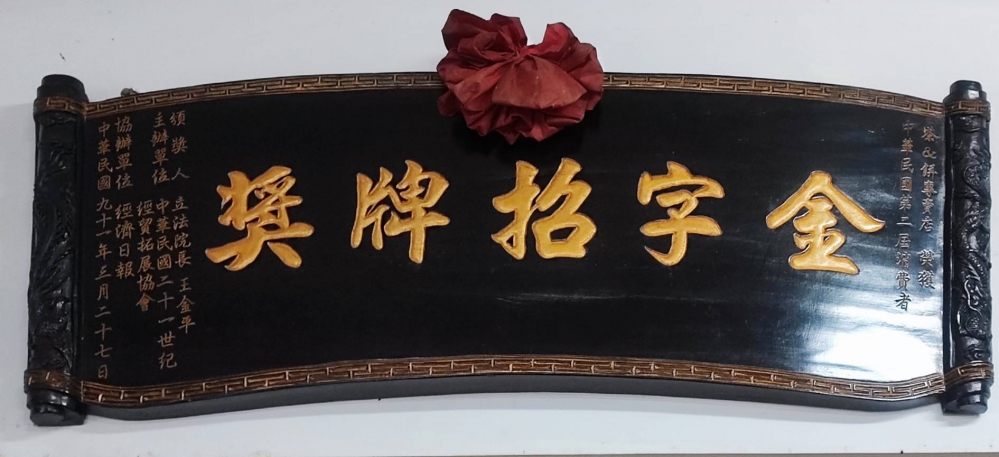 餅專賣店 榮獲
中華民國第二屆消費者
金字招牌獎
頒獎人 立法院長王金平
主辦單位 中華民國二十一世紀
經貿拓展協會
協辦單位 經濟日報
中華民國九十一年三月二十七日